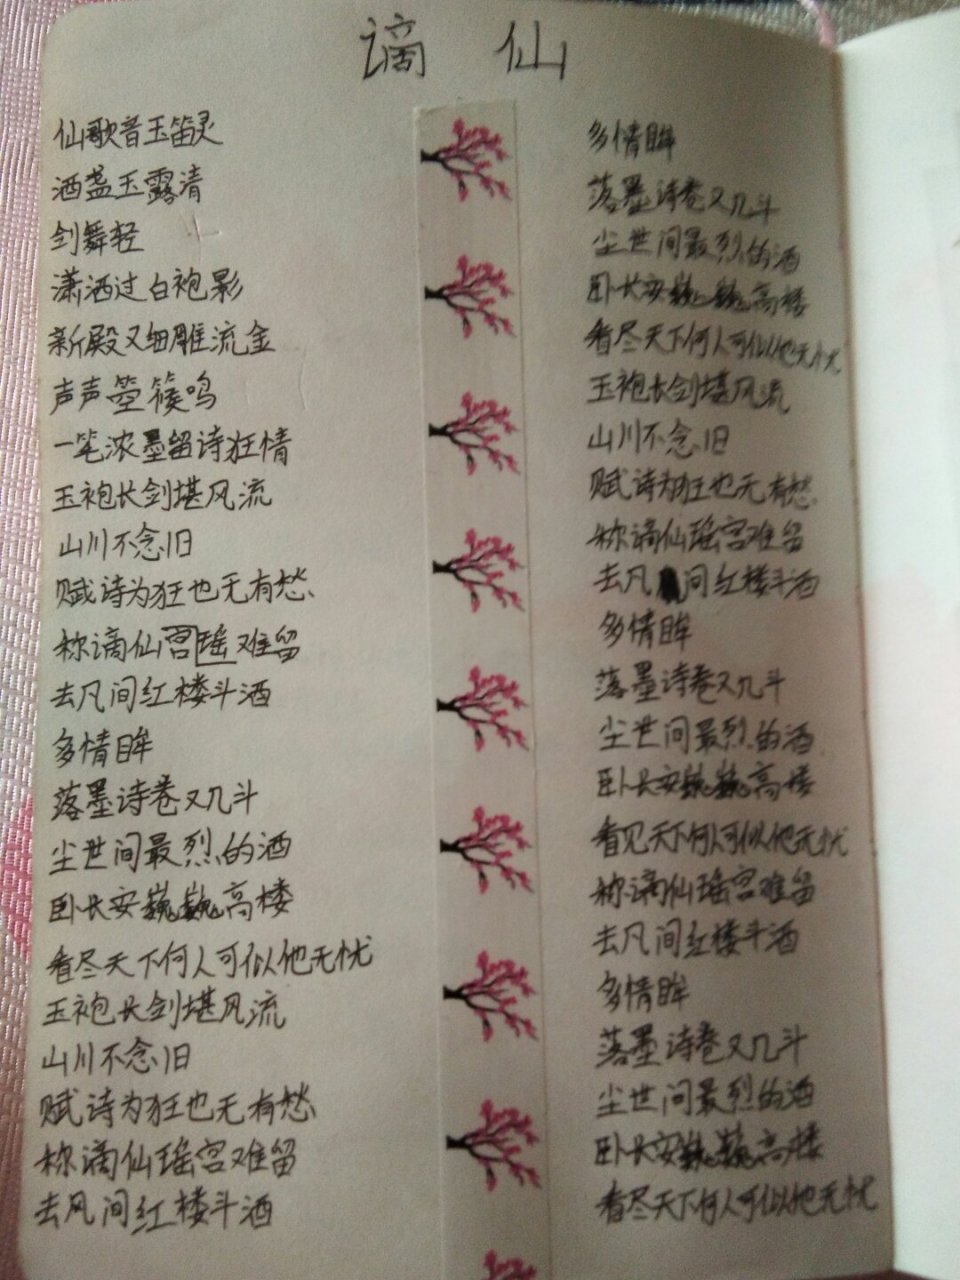 谪仙
仙歌音玉笛灵
酒盏玉露清
剑舞轻
潇洒过白袍影
新殿又细雕流金
声声箜篌鸣
一笔浓墨留诗狂情
玉袍长剑堪风流
山川不念旧
赋诗为狂也无有愁、
称谪仙宫瑶难留
去凡间红楼斗酒
多情眸
落墨诗卷又几斗
尘世间最烈的酒
卧长安巍巍高楼
看尽天下何人可似他无忧
玉袍长剑堪风流
山川不念旧
赋诗为狂也无有愁
称谪仙瑶宫难留
去凡间红楼斗酒
多情眸
落墨诗卷又几斗
尘世间最烈的酒
卧长安巍巍高楼
看尽天下何人可似他无忧
玉袍长剑堪风流
山川不念旧
赋诗为狂也无有愁
称谪仙瑶宫难留
去凡间红楼斗酒
多情眸
落墨诗卷又几斗
尘世间最烈的酒
卧长安巍巍高楼
看见天下何人可似他无忧
称谪仙瑶宫难留
去凡间红楼斗酒
多情眸
落墨诗卷又几斗
尘世间最烈的酒
卧长安巍巍高楼
看尽天下何人可似他无忧